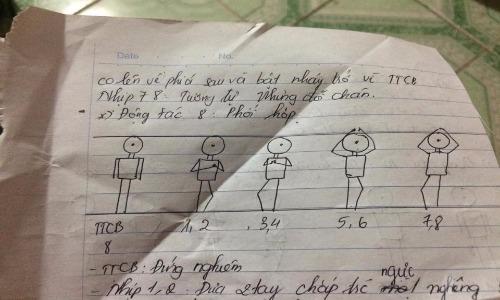 Date No.
co lên về phía sau và bật nhảy trở về TTCB
Nhịp 7 8: Tương tự nhưng đổi chân.
x) Động tác 8: Phối hợp.
TTCB 1, 2 , 3,4 5, 6 7,8
8
- TTCB: Đứng nghiêm
ngực
- Nhịp 1,2: Đưa 2 tay chấp trc nghiêng